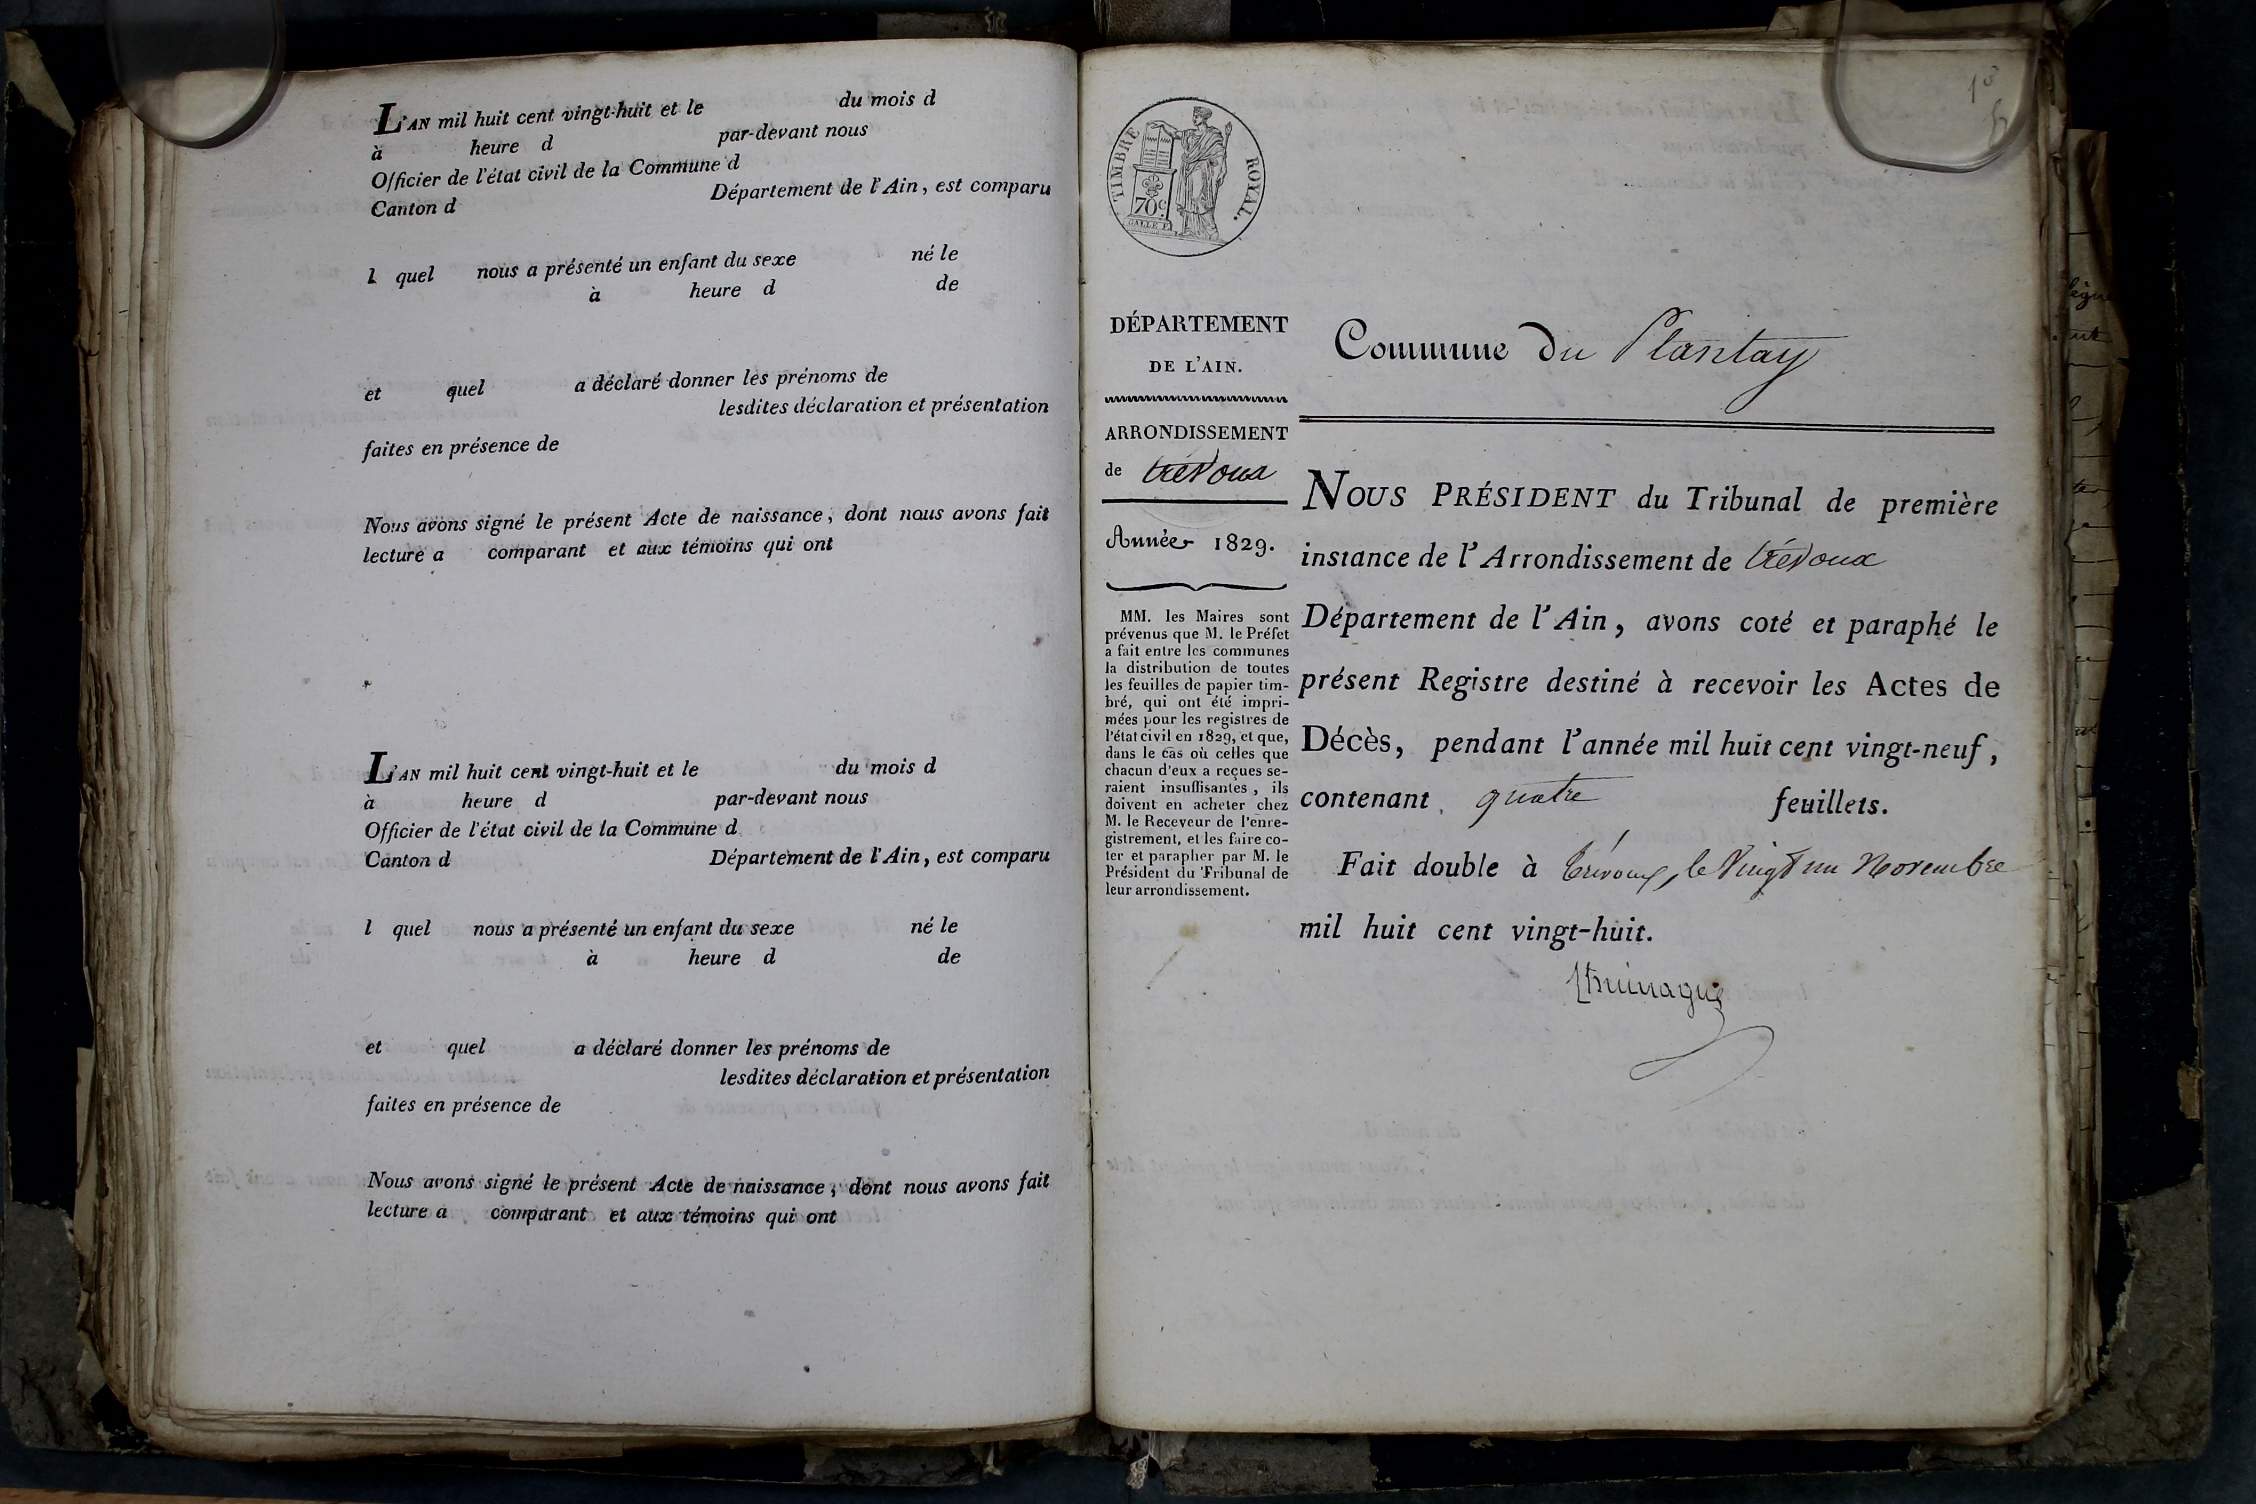 L'AN mil huit cent vingt-huit et le du mois d
à heure d par-devant nous
Officier de l'état civil de la Commune d
Canton d Département de l'Ain, est comparu
l quel nous a présenté un enfant du sexe né le
à heure d de
et quel a déclaré donner les prénoms de
lesdites déclaration et présentation
faites en présence de
Nous avons signé le présent Acte de naissance, dont nous avons fait
lecture a comparant et aux témoins qui ont
L'AN mil huit cent vingt-huit et le du mois d
à heure d par-devant nous
Officier de l'état civil de la Commune d
Canton d Département de l'Ain, est comparu
l quel nous a présenté un enfant du sexe né le
à heure d de
et quel a déclaré donner les prénoms de
lesdites déclaration et présentation
faites en présence de
Nous avons signé le présent Acte de naissance, dont nous avons fait
lecture a comparant et aux témoins qui ont
TIMBRE ROYAL.
70c.
DÉPARTEMENT
DE L'AIN.
ARRONDISSEMENT
de trévoux
Année 1829.
MM. les Maires sont
prévenus que M. le Préfet
a fait entre les communes
la distribution de toutes
les feuilles de papier tim-
bré, qui ont été impri-
mées pour les registres de
l'état civil en 1829, et que,
dans le cas où celles que
chacun d'eux a reçues se-
raient insuffisantes, ils
doivent en acheter chez
M. le Receveur de l'enre-
gistrement, et les faire co-
ter et parapher par M. le
Président du Tribunal de
leur arrondissement.
1er
Commune du Plantay
NOUS PRÉSIDENT du Tribunal de première
instance de l'Arrondissement de trévoux
Département de l'Ain, avons coté et paraphé le
présent Registre destiné à recevoir les Actes de
Décès, pendant l'année mil huit cent vingt-neuf,
contenant quatre feuillets.
Fait double à trévoux, le vingt un Novembre
mil huit cent vingt-huit.